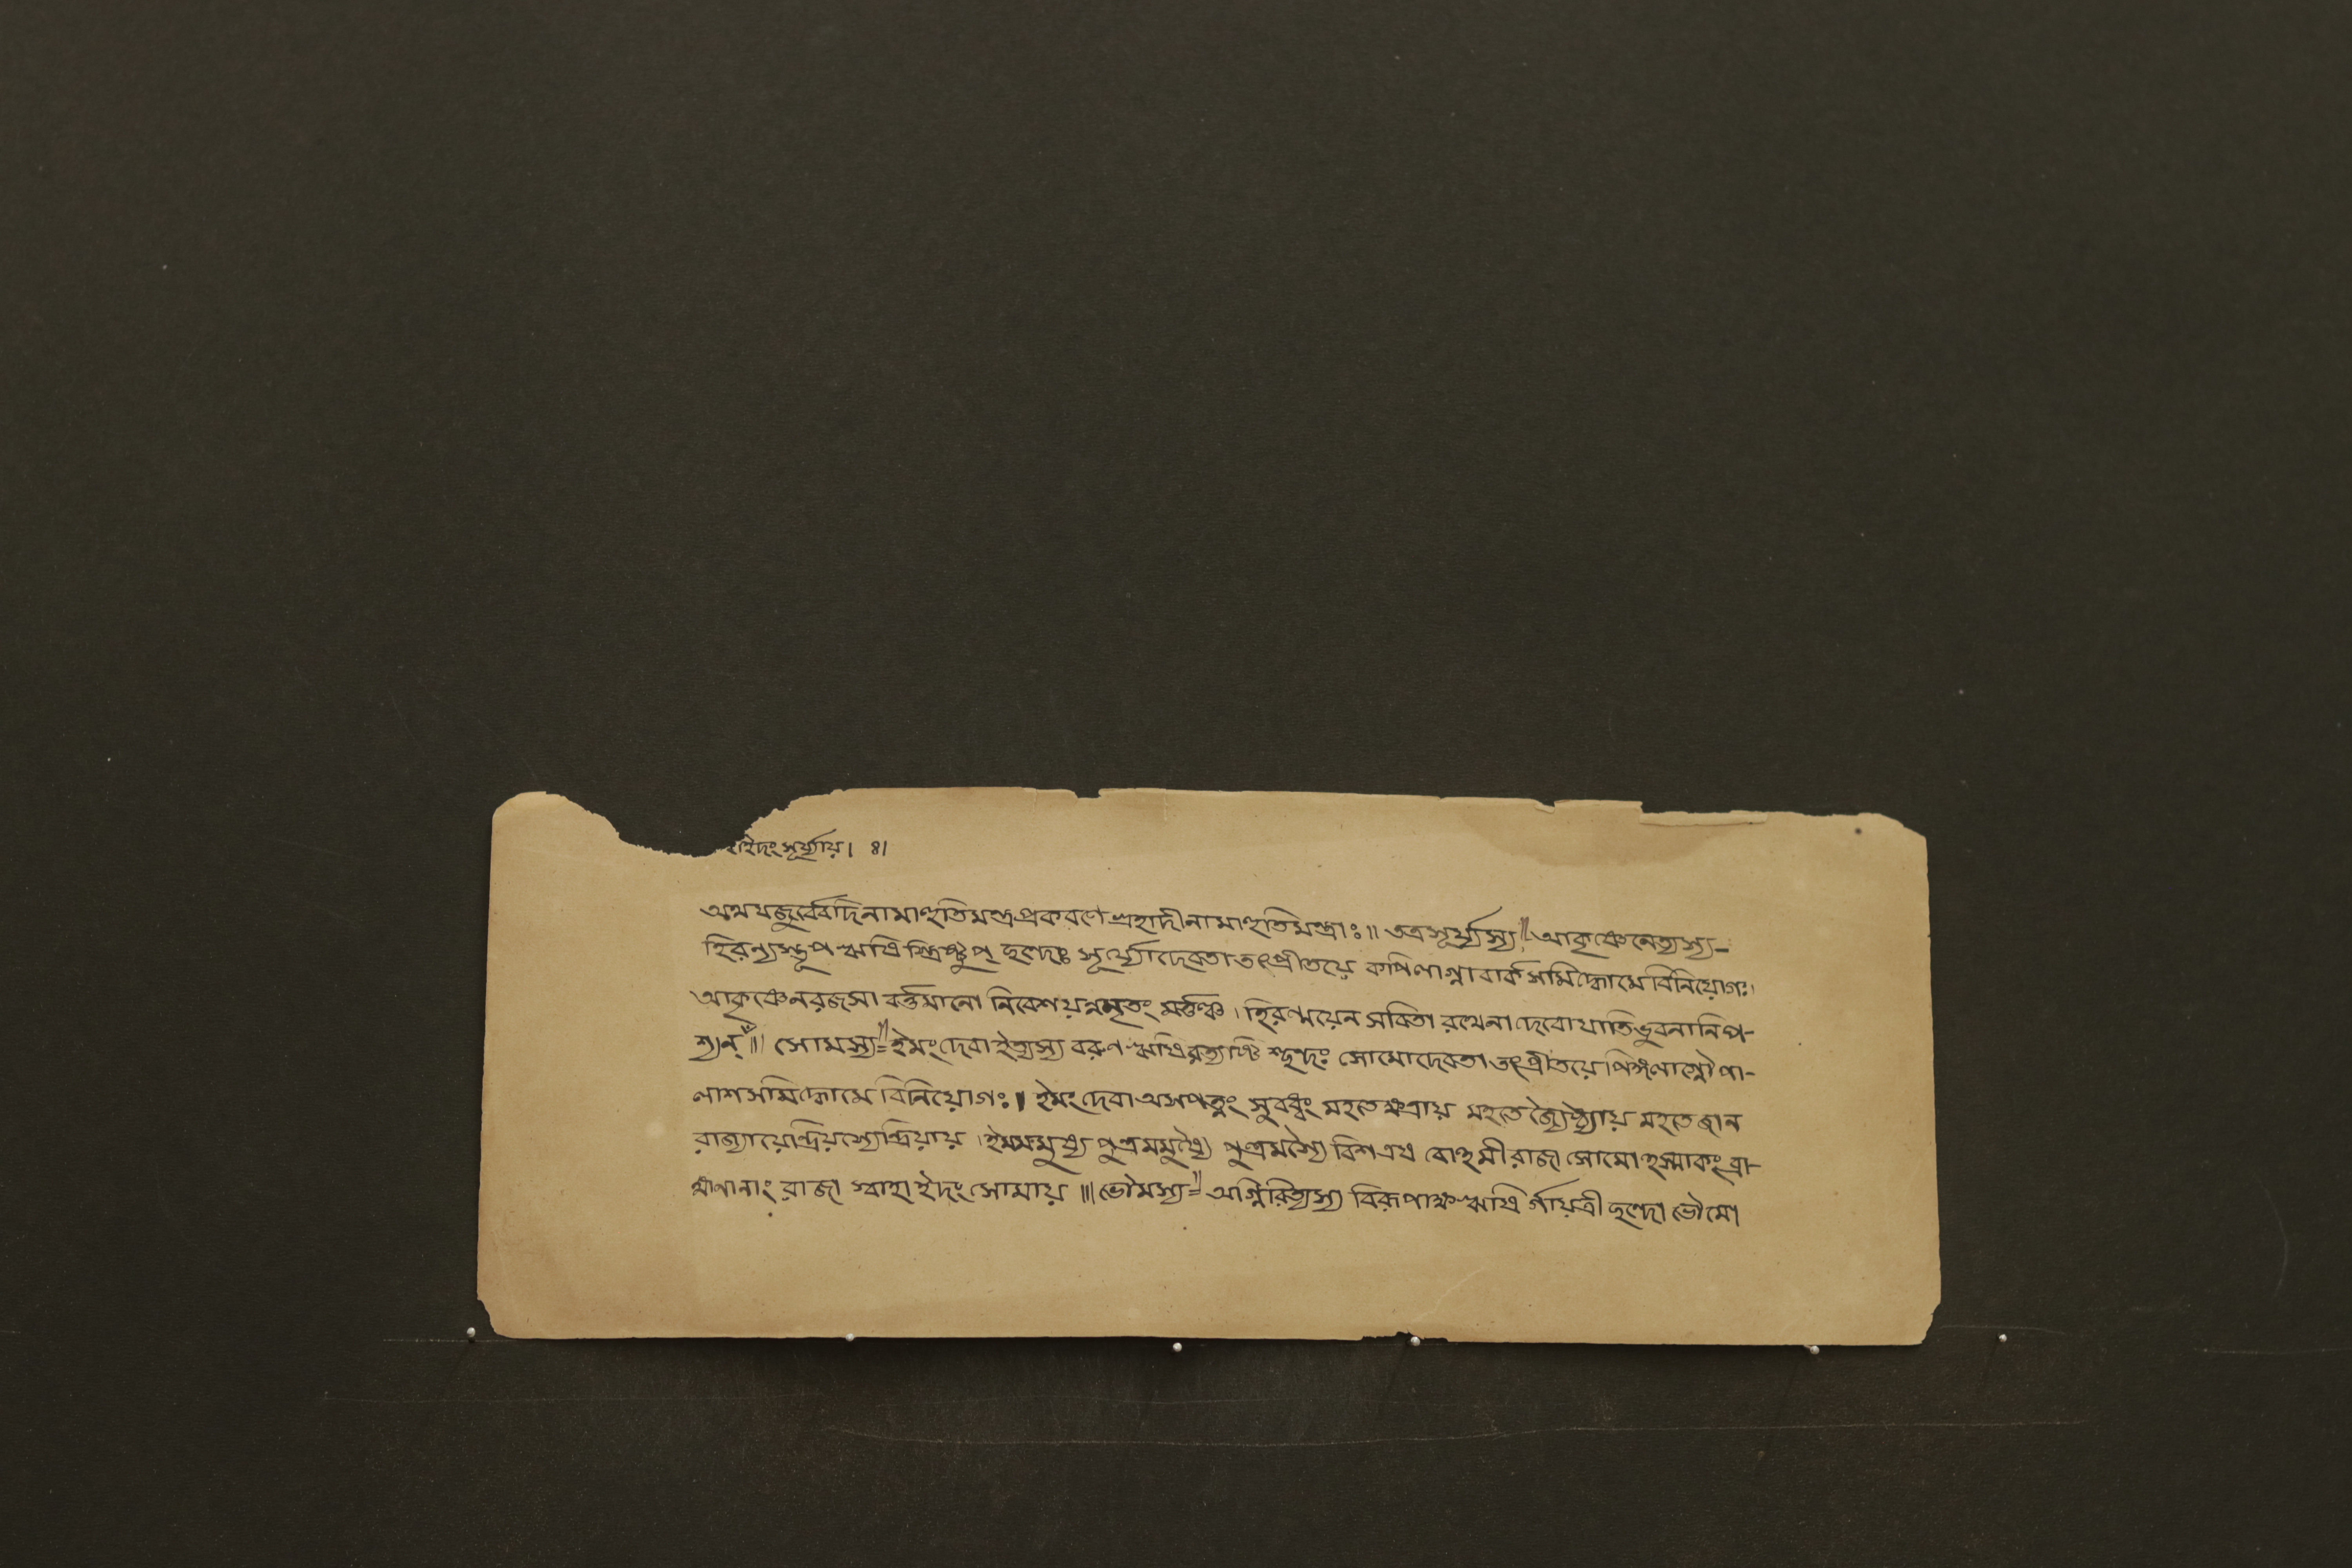 হাইদং সূর্য্যায়। ৪।
অথযজুর্ব্বেদিনামাহুতিমন্ত্রপ্রকরণে গ্রহাদীনামাহুতিমন্ত্রাঃ॥ তত্রসূর্য্যস্য॥ আকৃষ্ণেনেত্যস্য-
হিরন্যস্তূপ ঋষি স্ত্রিষ্টুপ্ ছন্দঃ সূর্য্যোদেবতা তৎপ্রীতয়ে কপিলাগ্নাবার্কসমিদ্ধোমে বিনিয়োগঃ।
আকৃষ্ণেনরজসা বর্ত্তমানো নিবেশয়ন্নমৃতং মর্ত্ত্যঞ্চ। হিরণ্ময়েন সবিতা রথেনা দেবোযাতিভুবনানিপ-
শ্যন্॥ সোমস্য= ইমং দেবা ইত্যস্য বরুণ ঋষিরত্যষ্টি শ্ছন্দঃ সোমোদেবতা তৎপ্রীতয়ে পিঙ্গলাগ্নৌ পা-
লাশসমিদ্ধোমে বিনিয়োগঃ। ইমং দেবা অসপত্নং সুবধ্বং মহতেক্ষত্রায় মহতে জ্যৈষ্ঠ্যায় মহতে জান
রাজ্যায়েন্দ্রিয়স্যেন্দ্রিয়ায়। ইমমমুষ্য পুত্রমমুষ্যৈ পুত্রমস্যৈ বিশ এষ বোহমী রাজা সোমোহস্মাকং ব্রা-
হ্মণানাং রাজা স্বাহা ইদং সোমায়॥ ভৌমস্য= অগ্নিরিত্যস্য বিরূপাক্ষ ঋষি র্গায়ত্রী ছন্দো ভৌমো